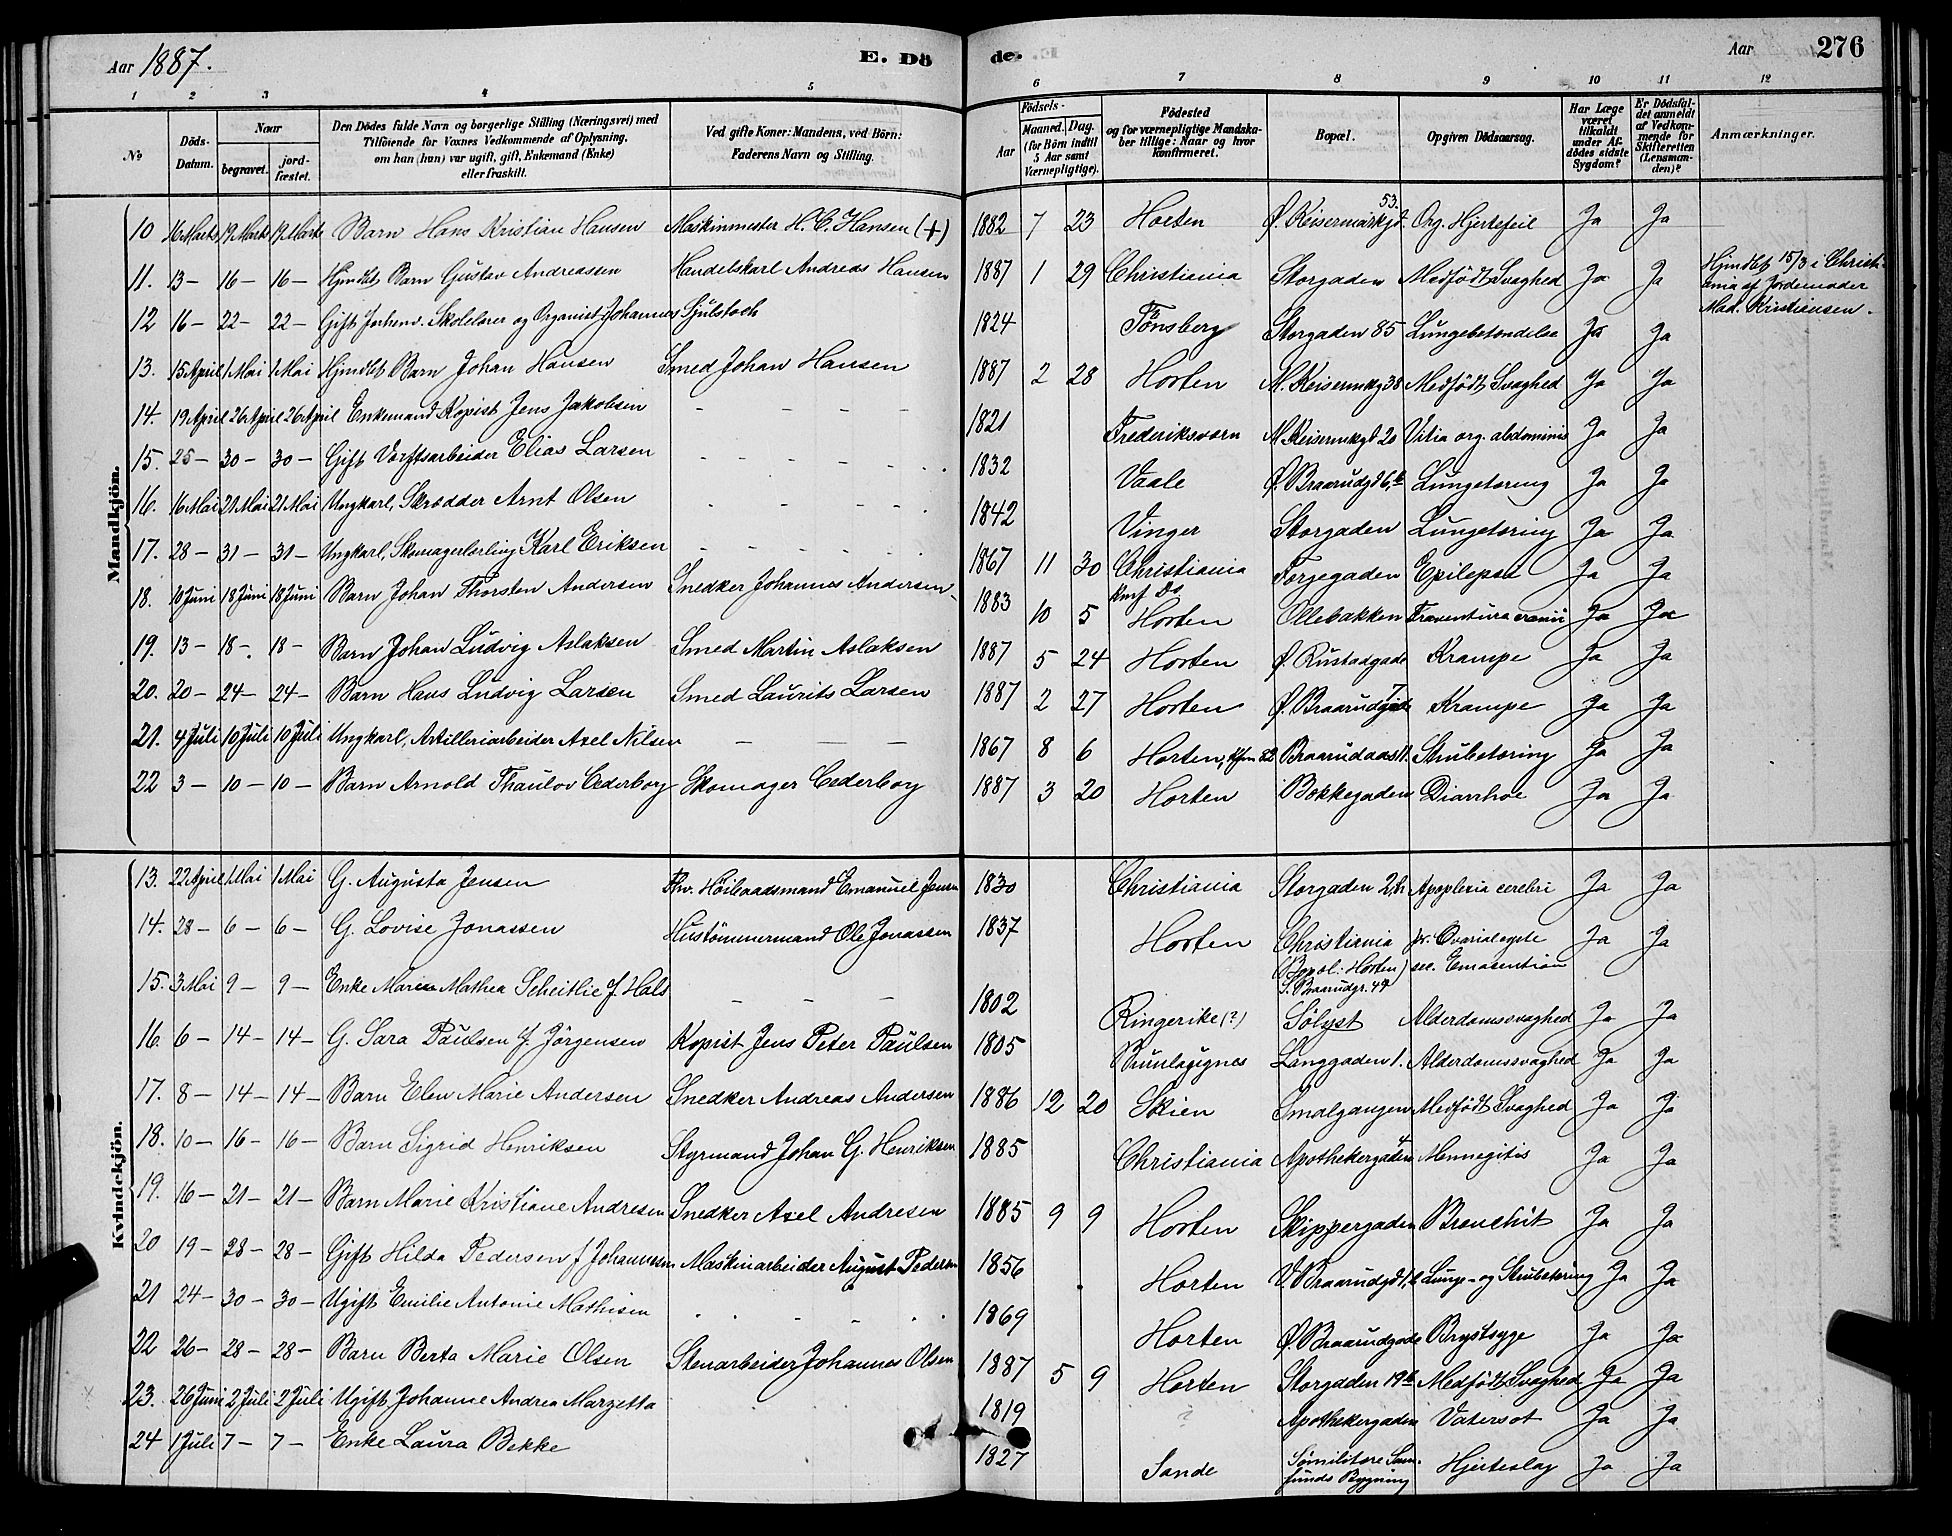 Aar 1887. E. Dö
de. Aar 276
1 2 3 4 5 6 7 8 9 10 11 12
No
Döds-Datum.
Naar
begravet.
jord-fæstet.
Den Dödes fulde Navn og borgerlige Stilling (Næringsvei) med
Tilföiende for Voxnes Vedkommende af Oplysning.
om han (hun) var ugift, gift, Enkemand (Enke)
eller fraskilt.
Ved gifte Koner: Mandens, ved Börn:
Faderens Navn og Stilling.
Födsels-
Aar
Maaned. Dag.
(for Börn indtil
5 Aar samt
Værnepligtige).
Födested
og for værnepligtige Mandska-
ber tillige: Naar og hvor
konfirmeret.
Bopæl.
Opgiven Dödsaarsag.
Har Læge
været
tilkaldt
under Af-
dödes sidste
Sygdom?
Er Dödsfal-
det anmeldt
af Vedkom-
mende for
Skifteretten
(Lensman-
den)?
Anmærkninger.
Mandkjön.
10 16 Marts 19 Marts 19 Marts Barn Hans Kristian Hansen Maskinmester H. C. Hansen (+) 1882 7 23 Horten Ø. Keisermarkgd. 53. Org. Hjertefeil Ja Ja
11. 13 – 16 – 16 – Hjmdbt Barn Gustav Andreassen Handelskarl Andreas Hansen 1887 1 29 Christiania Storgaden Medfödt Svaghed Ja Ja Hjmdbt 15/3 i Christi-
ania af Jordemoder
Mad. Kristiansen.
12 16 – 22 – 22 – Gift Forhenv. Skolelærer og Organist Johannes Sjulstoch 1824 Tönsberg Storgaden 85 Lungebetændelse Ja Ja
13. 15 April 1 Mai 1 Mai Hjmdbt Barn Johan Hansen Smed Johan Hansen 1887 2 28 Horten M. Keisermkg 38 Medfödt Svaghed Ja Ja
14. 19 April 26 April 26 April Enkemand Kopist Jens Jakobsen – – – – 1821 Frederiksværn M. Keisermkgd 20 Vitia org. abdominis Ja Ja
15. 25 – 30 – 30 – Gift Værftsarbeider Elias Larsen – – – – 1832 Vaale Ø. Braarudgd 6, b Lungetæring Ja Ja
16. 16 Mai 21 Mai 21 Mai Ungkarl, Skrædder Arnt Olsen – – – – 1842 Vinger Storgaden Lungetæring Ja Ja
17. 28 – 31 – 31 – Ungkarl, Skomagerlærling Karl Eriksen – – – – 1867 11 30 Christiania Konf Do Torgegaden Epilepsi Ja Ja
18. 10 Juni 18 Juni 18 Juni Barn Johan Thorsten Andersen Snedker Johannes Andersen 1883 10 5 Horten Ollebakken cranii Ja Ja
19. 13 – 18 – 18 – Barn Johan Ludvig Aslaksen Smed Martin Aslaksen 1887 5 24 Horten Ø. Rustadgade Krampe Ja Ja
20. 20 – 24 – 24 – Barn Hans Ludvig Larsen Smed Laurits Larsen 1887 2 27 Horten Ø. Braarudgade 7 Krampe Ja Ja
21. 4 Juli 10 Juli 10 Juli Ungkarl, Artilleriarbeider Axel Nilsen – – – 1867 8 6 Horten, kfm 82 Braarudaas 11. Strubetæring Ja Ja
22 3 – 10 – 10 – Barn Arnold Thaulov Cederborg Skomager Cederborg 1887 3 20 Horten Bokkegaden Diarrhoe Ja Ja
Kvindekjön.
13. 22 April 1 Mai 1 Mai G. Augusta Jensen Fhv. Höibaadsmand Emanuel Jensen 1830 Christiania Storgaden 2 b Apoplexia cerebri Ja Ja
14. 28 – 6 – 6 – G. Lovise Jonassen Hustömmermand Ole Jonassen 1837 Horten Christiania
(Bopæl: Horten)
S. Braarudgr. 49 pr. Ovarialcyste
sec. Ja Ja
15. 3 Mai 9 – 9 – Enke Maren Mathea Scheitlie f. Hals – – – 1802 Ringerike (?) Sölyst Alderdomssvaghed Ja Ja
16. 6 – 14 – 14 – G. Sara Paulsen f. Jörgensen Kopist Jens Peter Paulsen 1805 Brunlagignes Langgaden 1. Alderdomssvaghed Ja Ja
17. 8 – 14 – 14 – Barn Elen Marie Andersen Snedker Andreas Andersen 1886 12 20 Skien Smalgangen Medfödt Svaghed Ja Ja
18. 10 – 16 – 16 – Barn Sigrid Henriksen Styrmand Johan G. Henriksen 1885 Christiania Apothekergaden 4 Mennegitis Ja Ja
19. 16 – 21 – 21 – Barn Marie Kristiane Andresen Snedker Axel Andresen 1885 9 9 Horten Skippergaden Bronchit Ja Ja
20 19 – 28 – 28 – Gift Hilda Pedersen f Johannessen Maskinarbeider August Pedersen 1856 Horten V. Braarudgd Lunge- og Strubetæring Ja Ja
21 24 – 30 – 30 – Ugift Emilie Antonie Mathisen – – – – 1869 Horten Ø. Braarudgade Brystsyge Ja Ja
22 26 – 28 – 28 – Barn Berta Marie Olsen Stenarbeider Johannes Olsen 1887 5 9 Horten Storgaden 19 b Medfödt Svaghed Ja Ja
23. 26 Juni 2 Juli 2 Juli Ugift Johanne Andrea Marzetta 1819 ? Apothekergaden Vatersot Ja Ja
24 1 Juli 7 – 7 – Enke Laura Bekke 1827 Sande Sömilitære Sam-
funds Bygning Hjerteslag Ja Ja